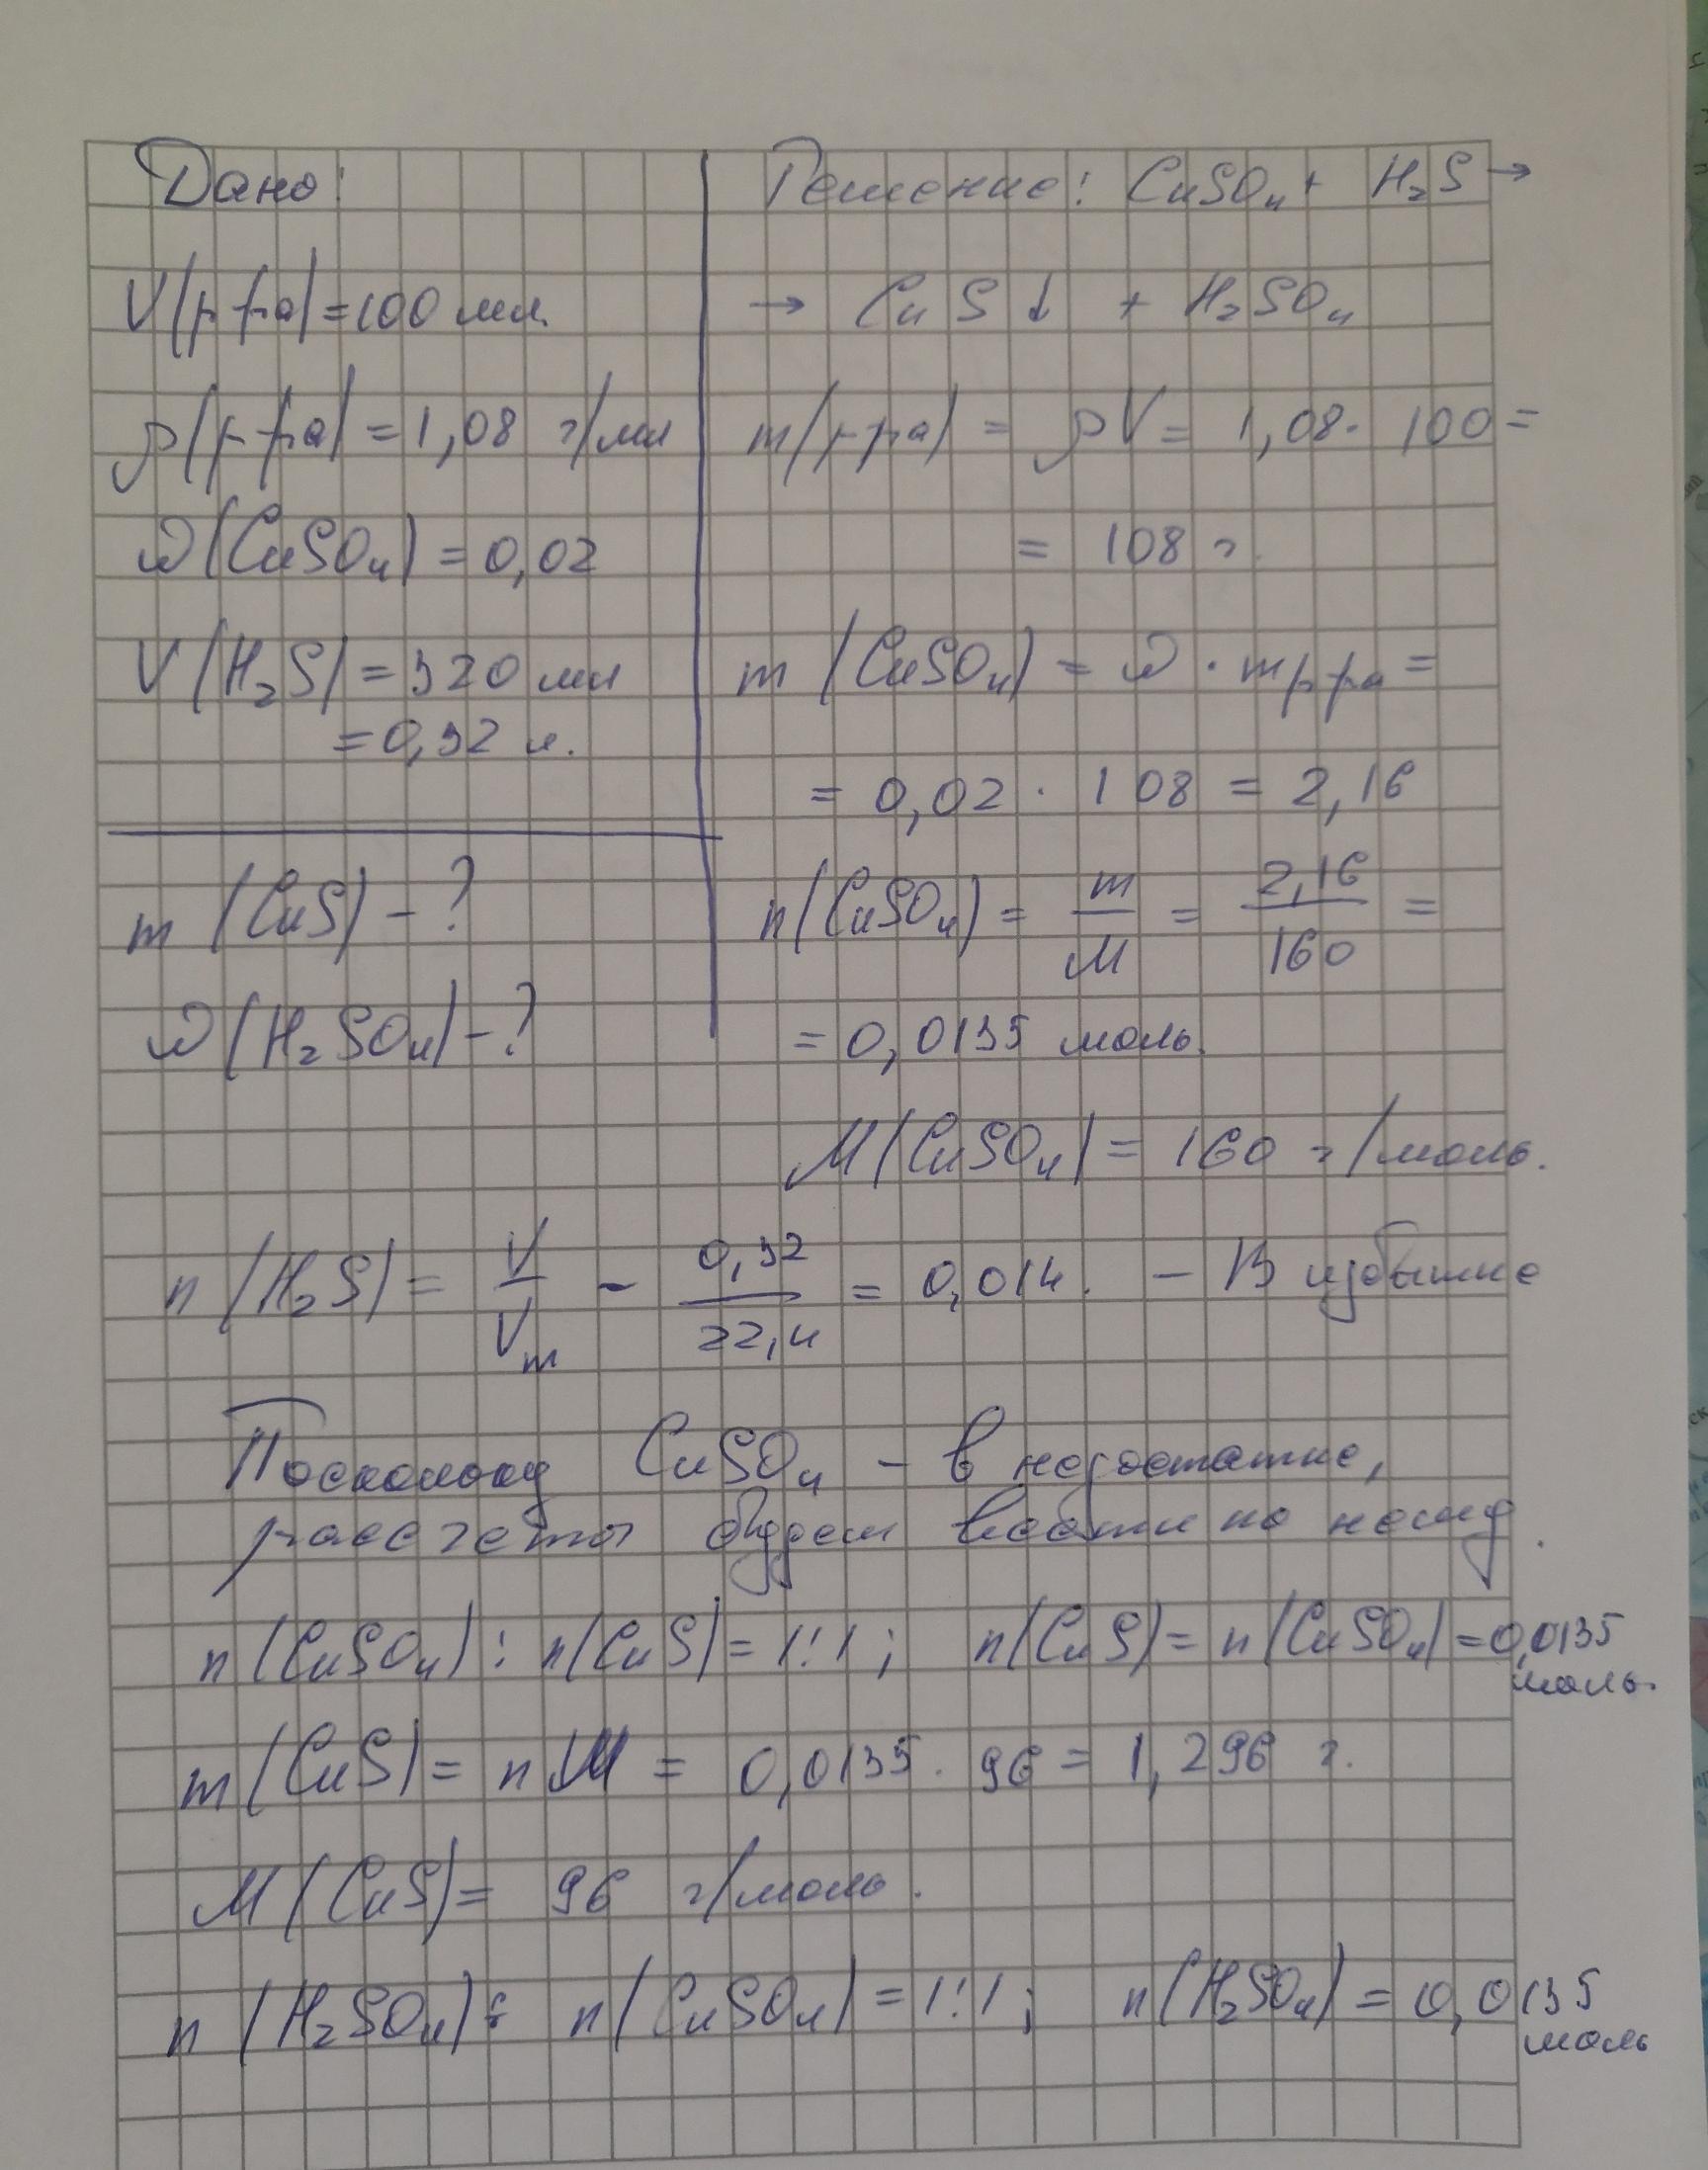 Дано:
V(р-ра)=100 мл.
ρ(р-ра)=1,08 г/мл
ω(CuSO₄)=0,02
V(H₂S)=320 мл
=0,32 л.
m(CuS)-?
ω(H₂SO₄)-?
Решение: CuSO₄ + H₂S →
→ CuS↓ + H₂SO₄
m(р-ра) = ρV = 1,08 · 100 =
= 108 г.
m(CuSO₄) = ω · mр-ра =
= 0,02 · 108 = 2,16
n(CuSO₄) = m/M = 2,16/160 =
= 0,0135 моль.
M(CuSO₄) = 160 г/моль.
n(H₂S) = V/Vm - 0,32/22,4 = 0,014. - В избытке
Поскольку CuSO₄ - в недостатке,
рассчеты будем вести по нему.
n(CuSO₄) : n(CuS) = 1:1; n(CuS) = n(CuSO₄) = 0,0135
моль.
m(CuS) = nM = 0,0135 · 96 = 1,296 г.
M(CuS) = 96 г/моль.
n(H₂SO₄) : n(CuSO₄) = 1:1; n(H₂SO₄) = 0,0135
моль